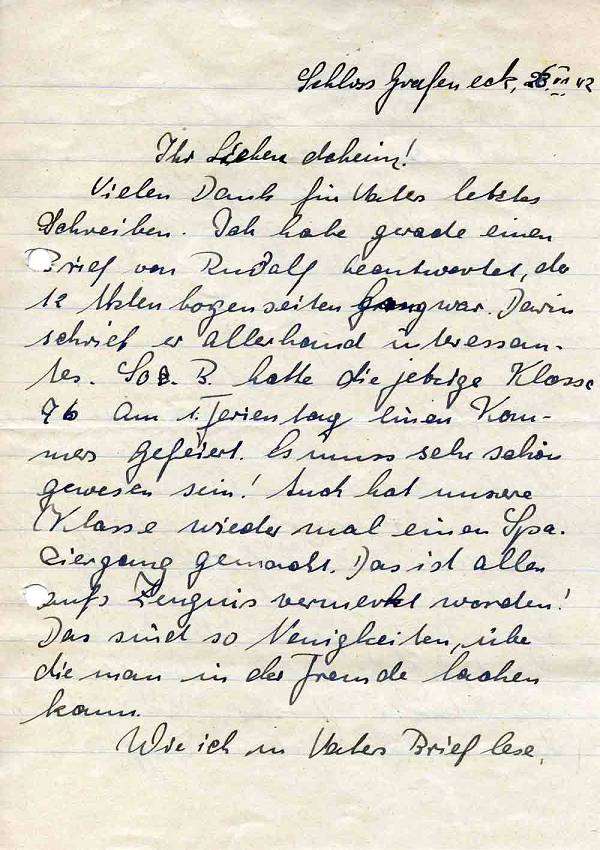 Schloss Grafeneck, 28.VI 42
Ihr Lieben daheim!
Vielen Dank für Vaters letztes
Schreiben. Ich habe gerade einen
Brief von Rudolf beantwortet, der
12 bogenseiten lang war. Darin
schrieb er allerhand interessan-
tes. So z. B. hatte die jetzige Klasse
7b am 1. Ferientag einen Kom-
mers gefeiert. Es muss sehr schön
gewesen sein! Auch hat unsere
Klasse wieder mal einen Spa-
ziergang gemacht. Das ist allen
aufs Zeugnis vermerkt worden!
Das sind so Neuigkeiten, über
die man in der Fremde lachen
kann.
Wie ich in Vaters Brief lese,